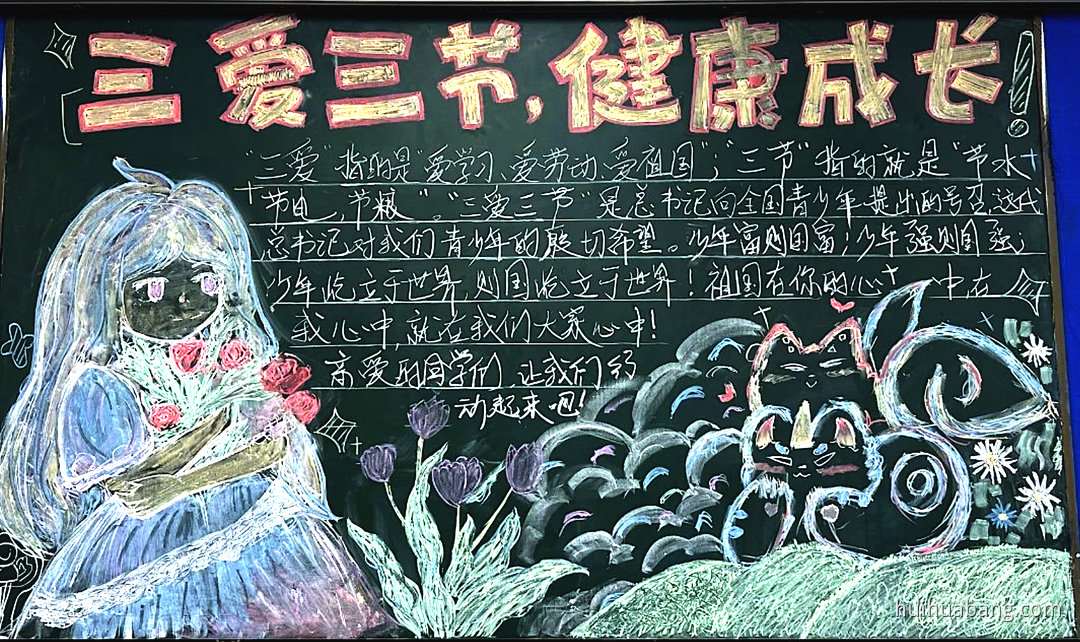 三爱三节，健康成长！
"三爱"指的是"爱学习、爱劳动、爱祖国"；"三节"指的就是"节水
节电，节粮"。"三爱三节"是总书记向全国青少年提出的号召，这代
总书记对我们青少年的殷切希望。少年富则国富；少年强则国强；
少年屹立于世界，则国屹立于世界！祖国在你的心中在
我心中，就在我们大家心中！
亲爱的同学们，让我们行
动起来吧！
hujihuabang.com